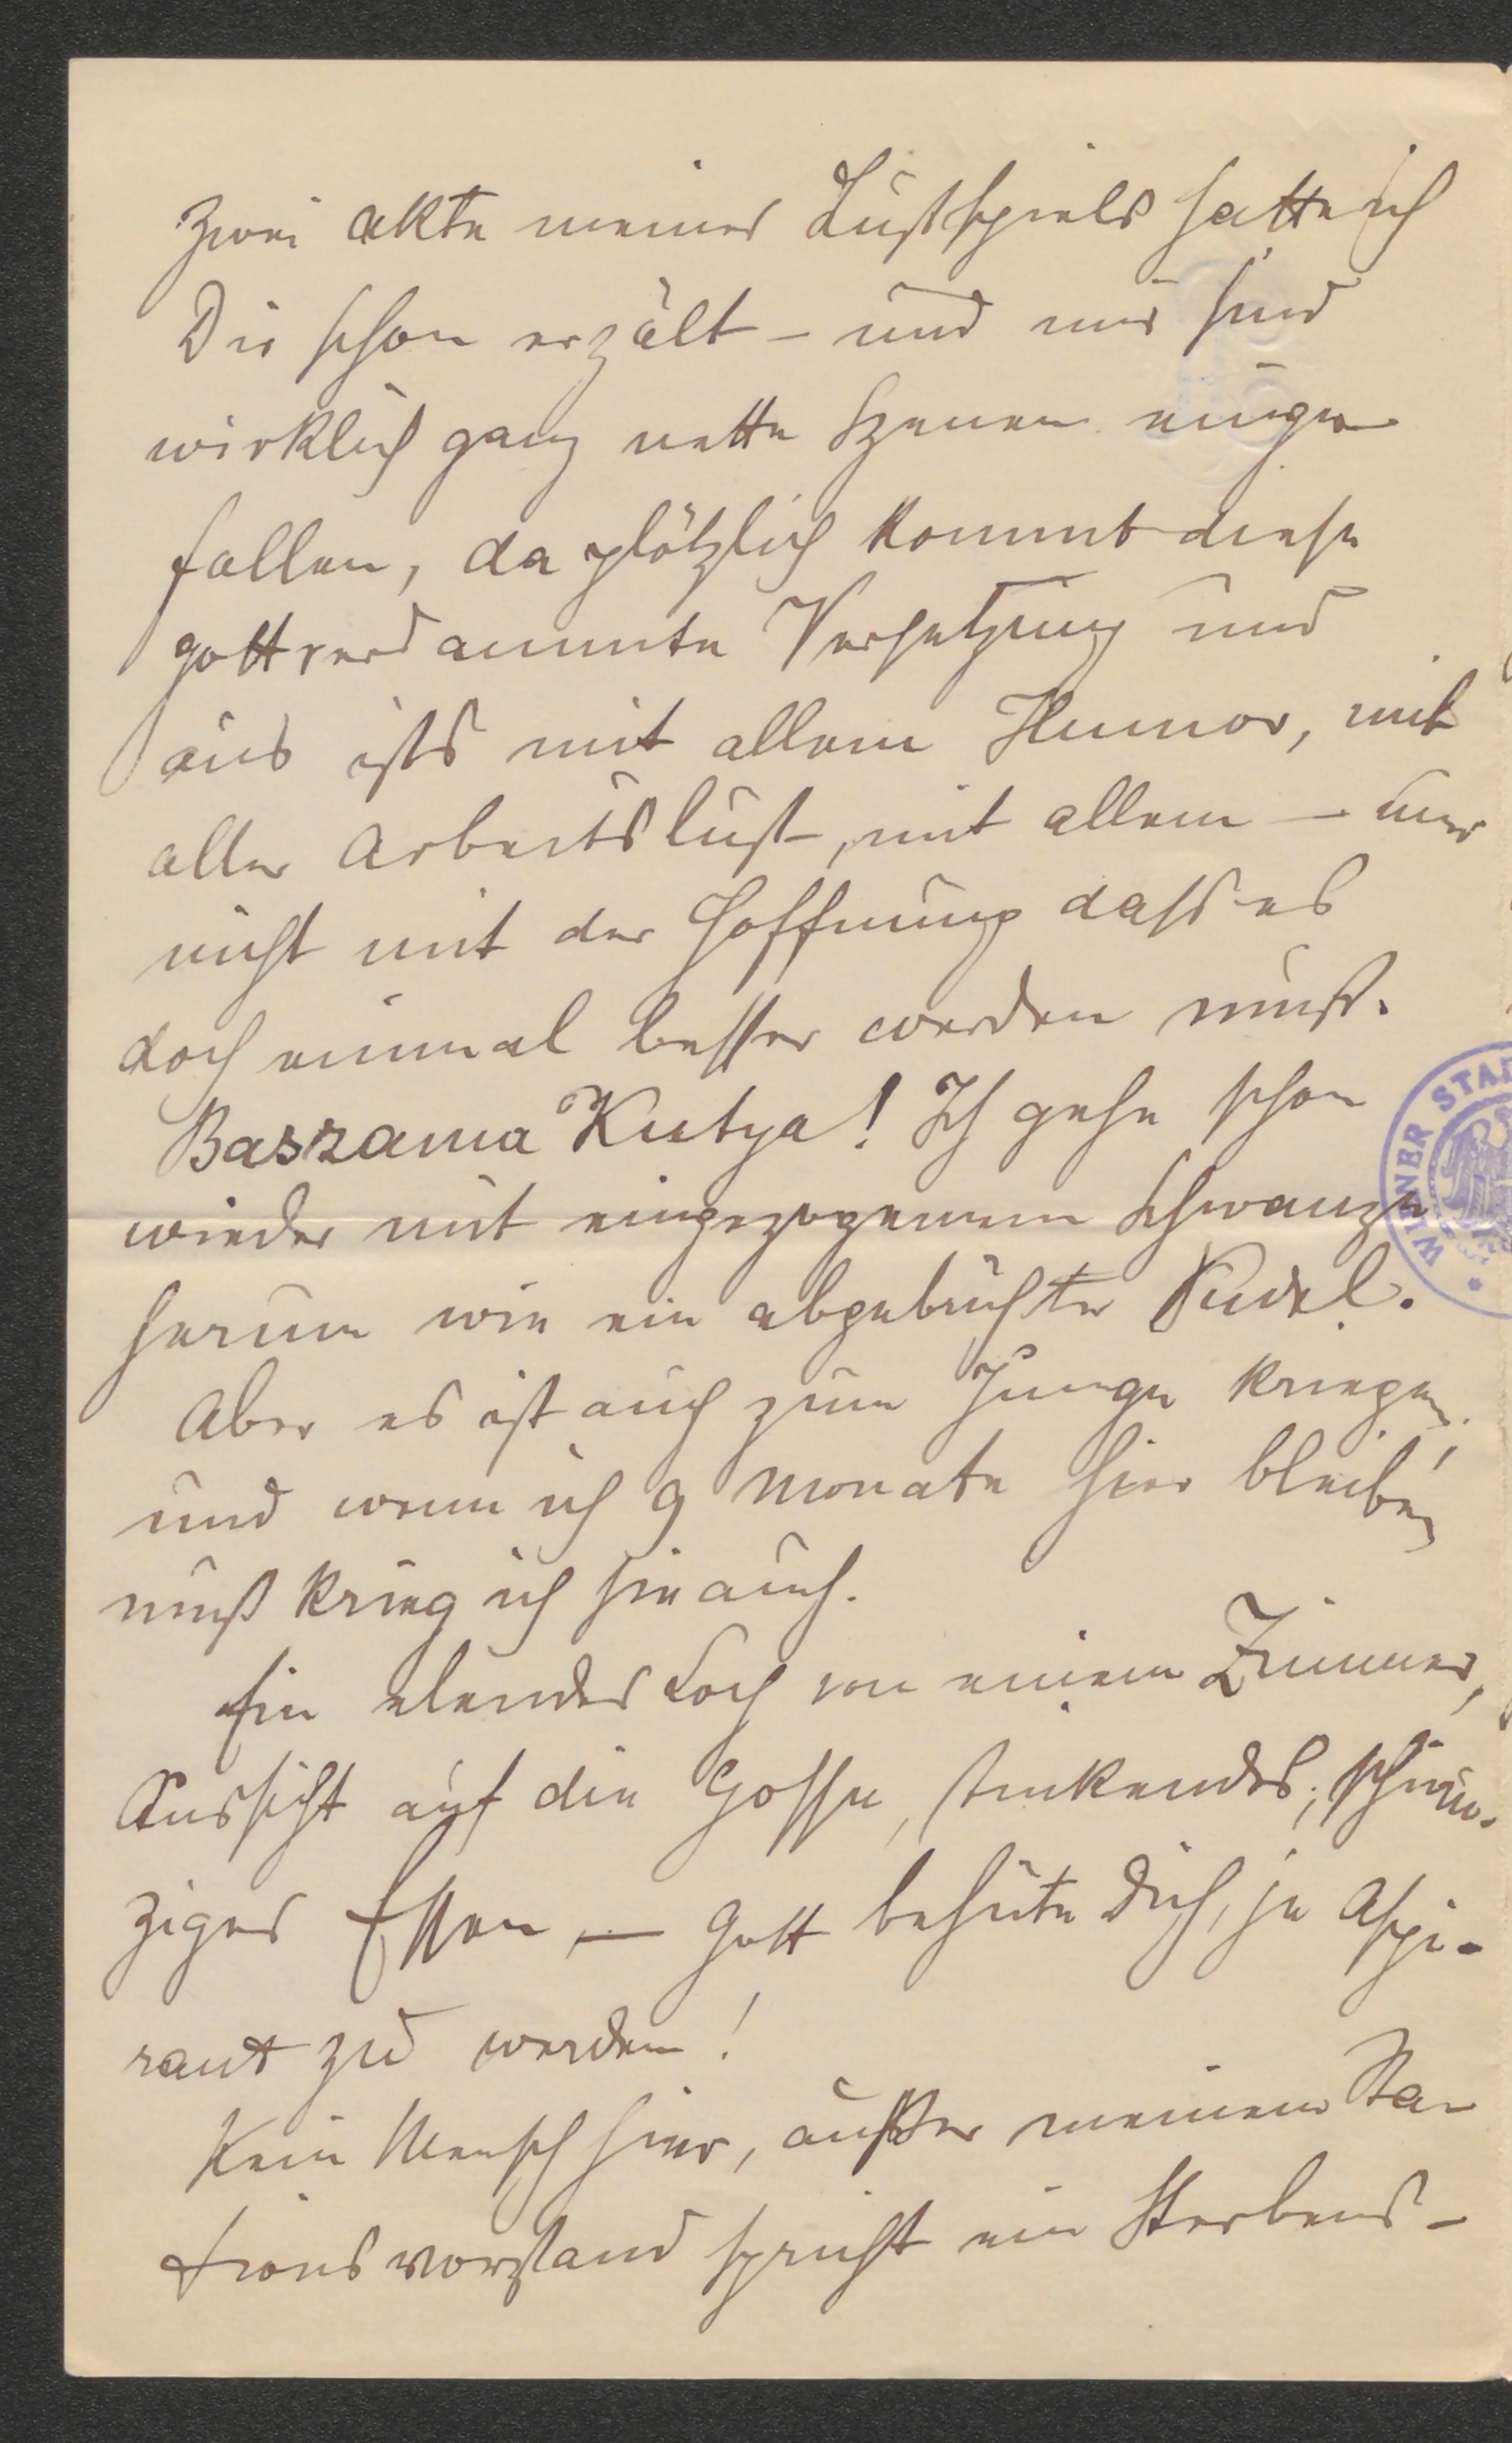 zwei Akte meines Lustspiels hatte ich
Dir schon erzält – und mir sind
wirklich ganz nette Szenen einge-
fallen, da plötzlich kommt diese
gottverdammte Versetzung und
aus ists mit allem Humor, mit
aller Arbeitslust, mit allem – nur
nicht mit der Hoffnung dass es
doch einmal besser werden muß.
Baszama Kutya! Ich gehe schon
wieder mit eingezogenem Schwanze
herum wie ein abgebrühter Pudel.
Aber es ist auch zum Junge kriegen,
und wenn ich 9 Monate hier bleiben
muß krieg ich sie auch.
Ein elendes Loch von einem Zimmer,
Aussicht auf die Gosse, stinkendes, schmu-
ziges Essen, – Gott behüte Dich, je Aspi-
rant zu werden!
Kein Mensch hier, außer meinem Sta-
tionsvorstand spricht ein Sterbens-
WIENER STA